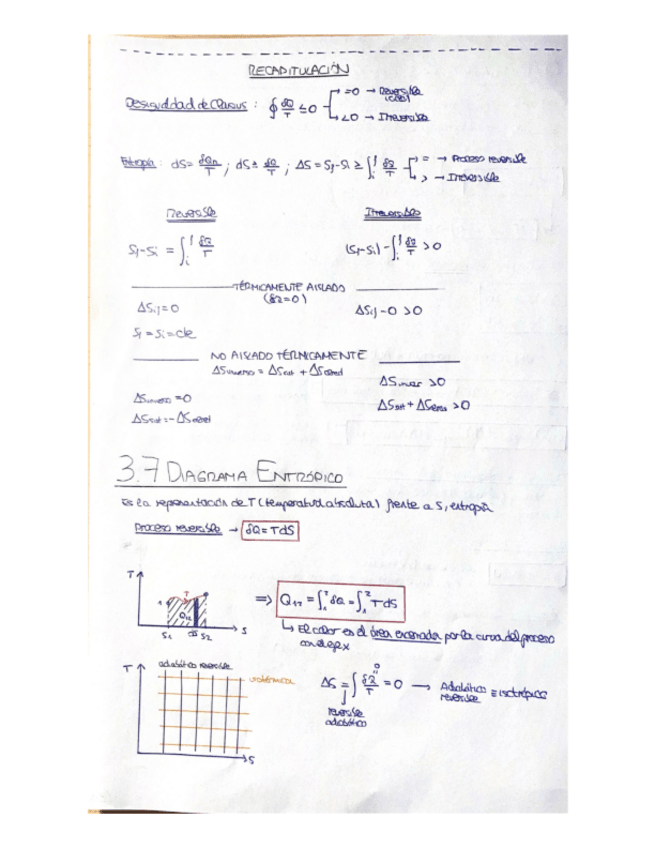 RECAPITULACIÓN
Desigualdad de Clausius : ∮ δQ/T ≤ 0 =0 → Reversible (ciclo)
<0 → Irreversible
Entropía : dS = δQR/T ; dS ≥ δQ/T ; ΔS = Sf-Si ≥ ∫i^f δQ/T = → Proceso reversible
> → Irreversible
Reversible Irreversible
Sf-Si = ∫i^f δQ/T (Sf-Si) - ∫i^f δQ/T > 0
TÉRMICAMENTE AISLADO
(δQ=0)
ΔSif = 0 ΔSif - 0 > 0
Sf = Si = cte
NO AISLADO TÉRMICAMENTE
ΔSuniverso = ΔSsist + ΔSalred
ΔSuniver > 0
ΔSuniverso = 0
ΔSsist + ΔSalred > 0
ΔSsist = -ΔSalred
3.7 DIAGRAMA ENTRÓPICO
Es la representación de T (temperatura absoluta) frente a S, entropía
Proceso reversible → δQ = TdS
T
1 2
Q12
S1 dS S2 S
⇒ Q12 = ∫1^2 δQ = ∫1^2 TdS
↳ El calor es el área encerrada por la curva del proceso
con el eje x
T adiabático reversible
isotérmica
S
ΔS = ∫ δQ/T = 0 → Adiabático ≡ isotrópico
0
reversible
reversible
adiabático